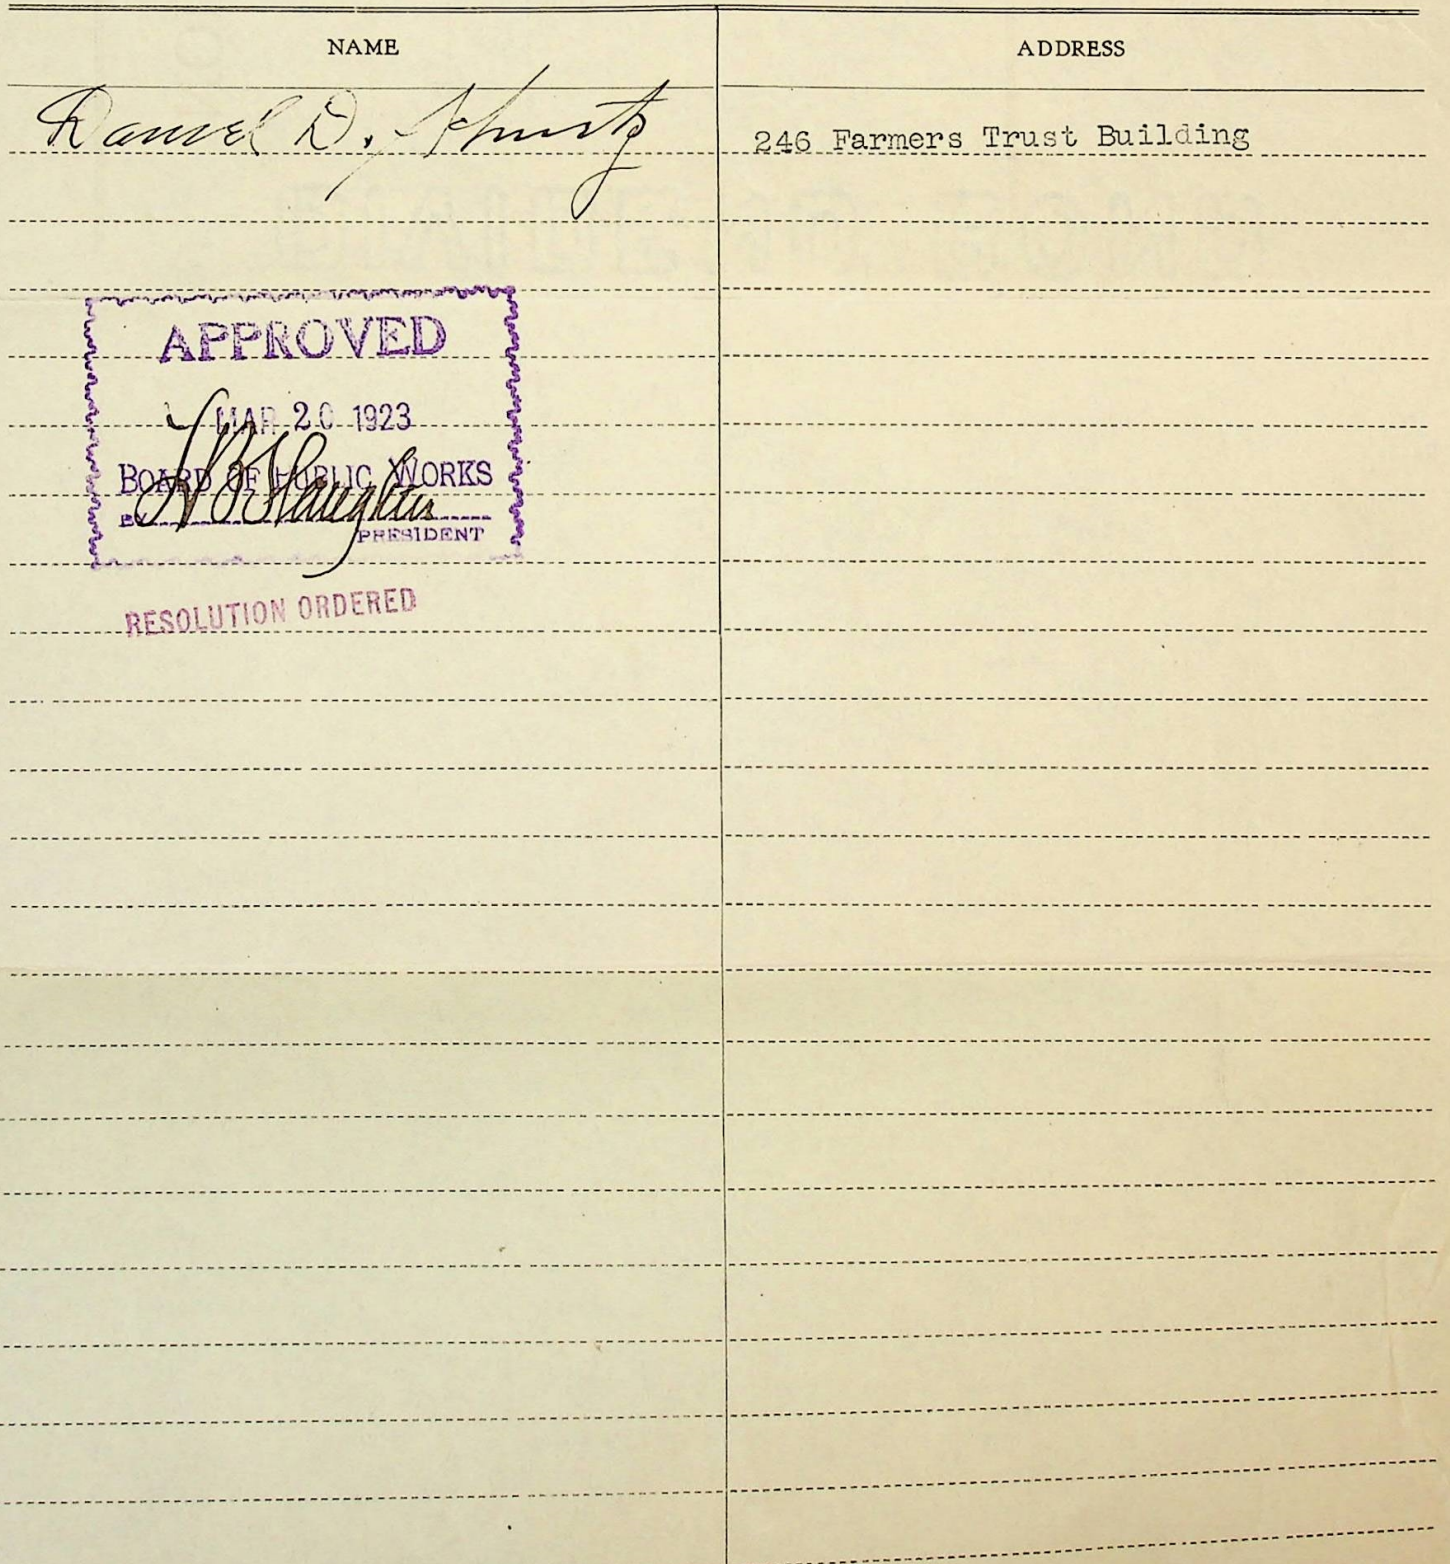 NAME ADDRESS
Daniel D. 246 Farmers Trust Building
APPROVED
MAR 20 1923
BOARD OF PUBLIC WORKS
BY
PRESIDENT
RESOLUTION ORDERED